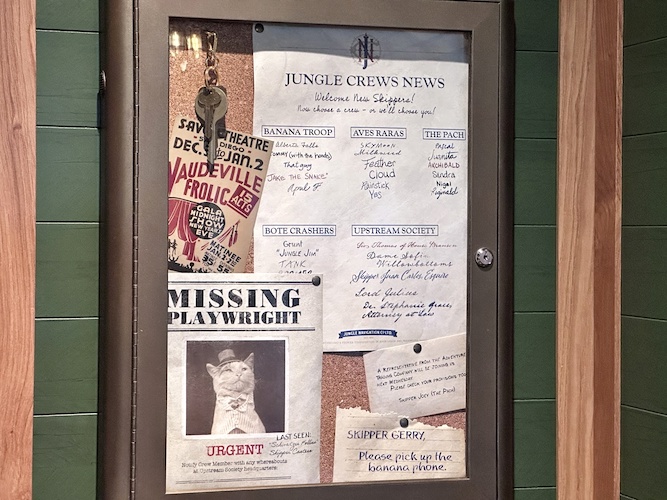 SAVOY THEATRE
SAN DIEGO
DEC.
JAN. 2
VAUDEVILLE
FROLIC
15
ACTS
GALA
MIDNIGHT
SHOW
NEW YEARS
EVE
MATINEE
JN
JUNGLE CREWS NEWS
Welcome New Skippers!
Now choose a crew - or we'll choose you!
BANANA TROOP
Alberta Falls
(with the hands)
That guy
JAKE THE SNAKE
April F.
AVES RARAS
SKYMOON
Milkweed
Feather
Cloud
Rainstick
Yes
THE PACH
Pascal
Juanita
ARCHIBALD
Sandra
Nigel
Reginald
BOTE CRASHERS
Grunt
"JUNGLE JIM"
TANK
UPSTREAM SOCIETY
Sir Thomas of
Dame Sofia
Willowbottoms
Skipper Juan Carlos Esquire
Lord Julius
Dr. Stephanie Grace,
Attorney at Law
JUNGLE NAVIGATION CO. LTD.
MISSING
PLAYWRIGHT
URGENT
LAST SEEN:
Skipper Canteen
Notify Crew Member with any whereabouts
at Upstream Society headquarters.
A REPRESENTATIVE FROM THE ADVENTURE
TRADING COMPANY WILL BE JOINING US
NEXT WEDNESDAY.
PLEASE CHECK YOUR PROVISIONS TOO
SKIPPER JOEY (THE PACH)
SKIPPER GERRY,
Please pick up the
banana phone.